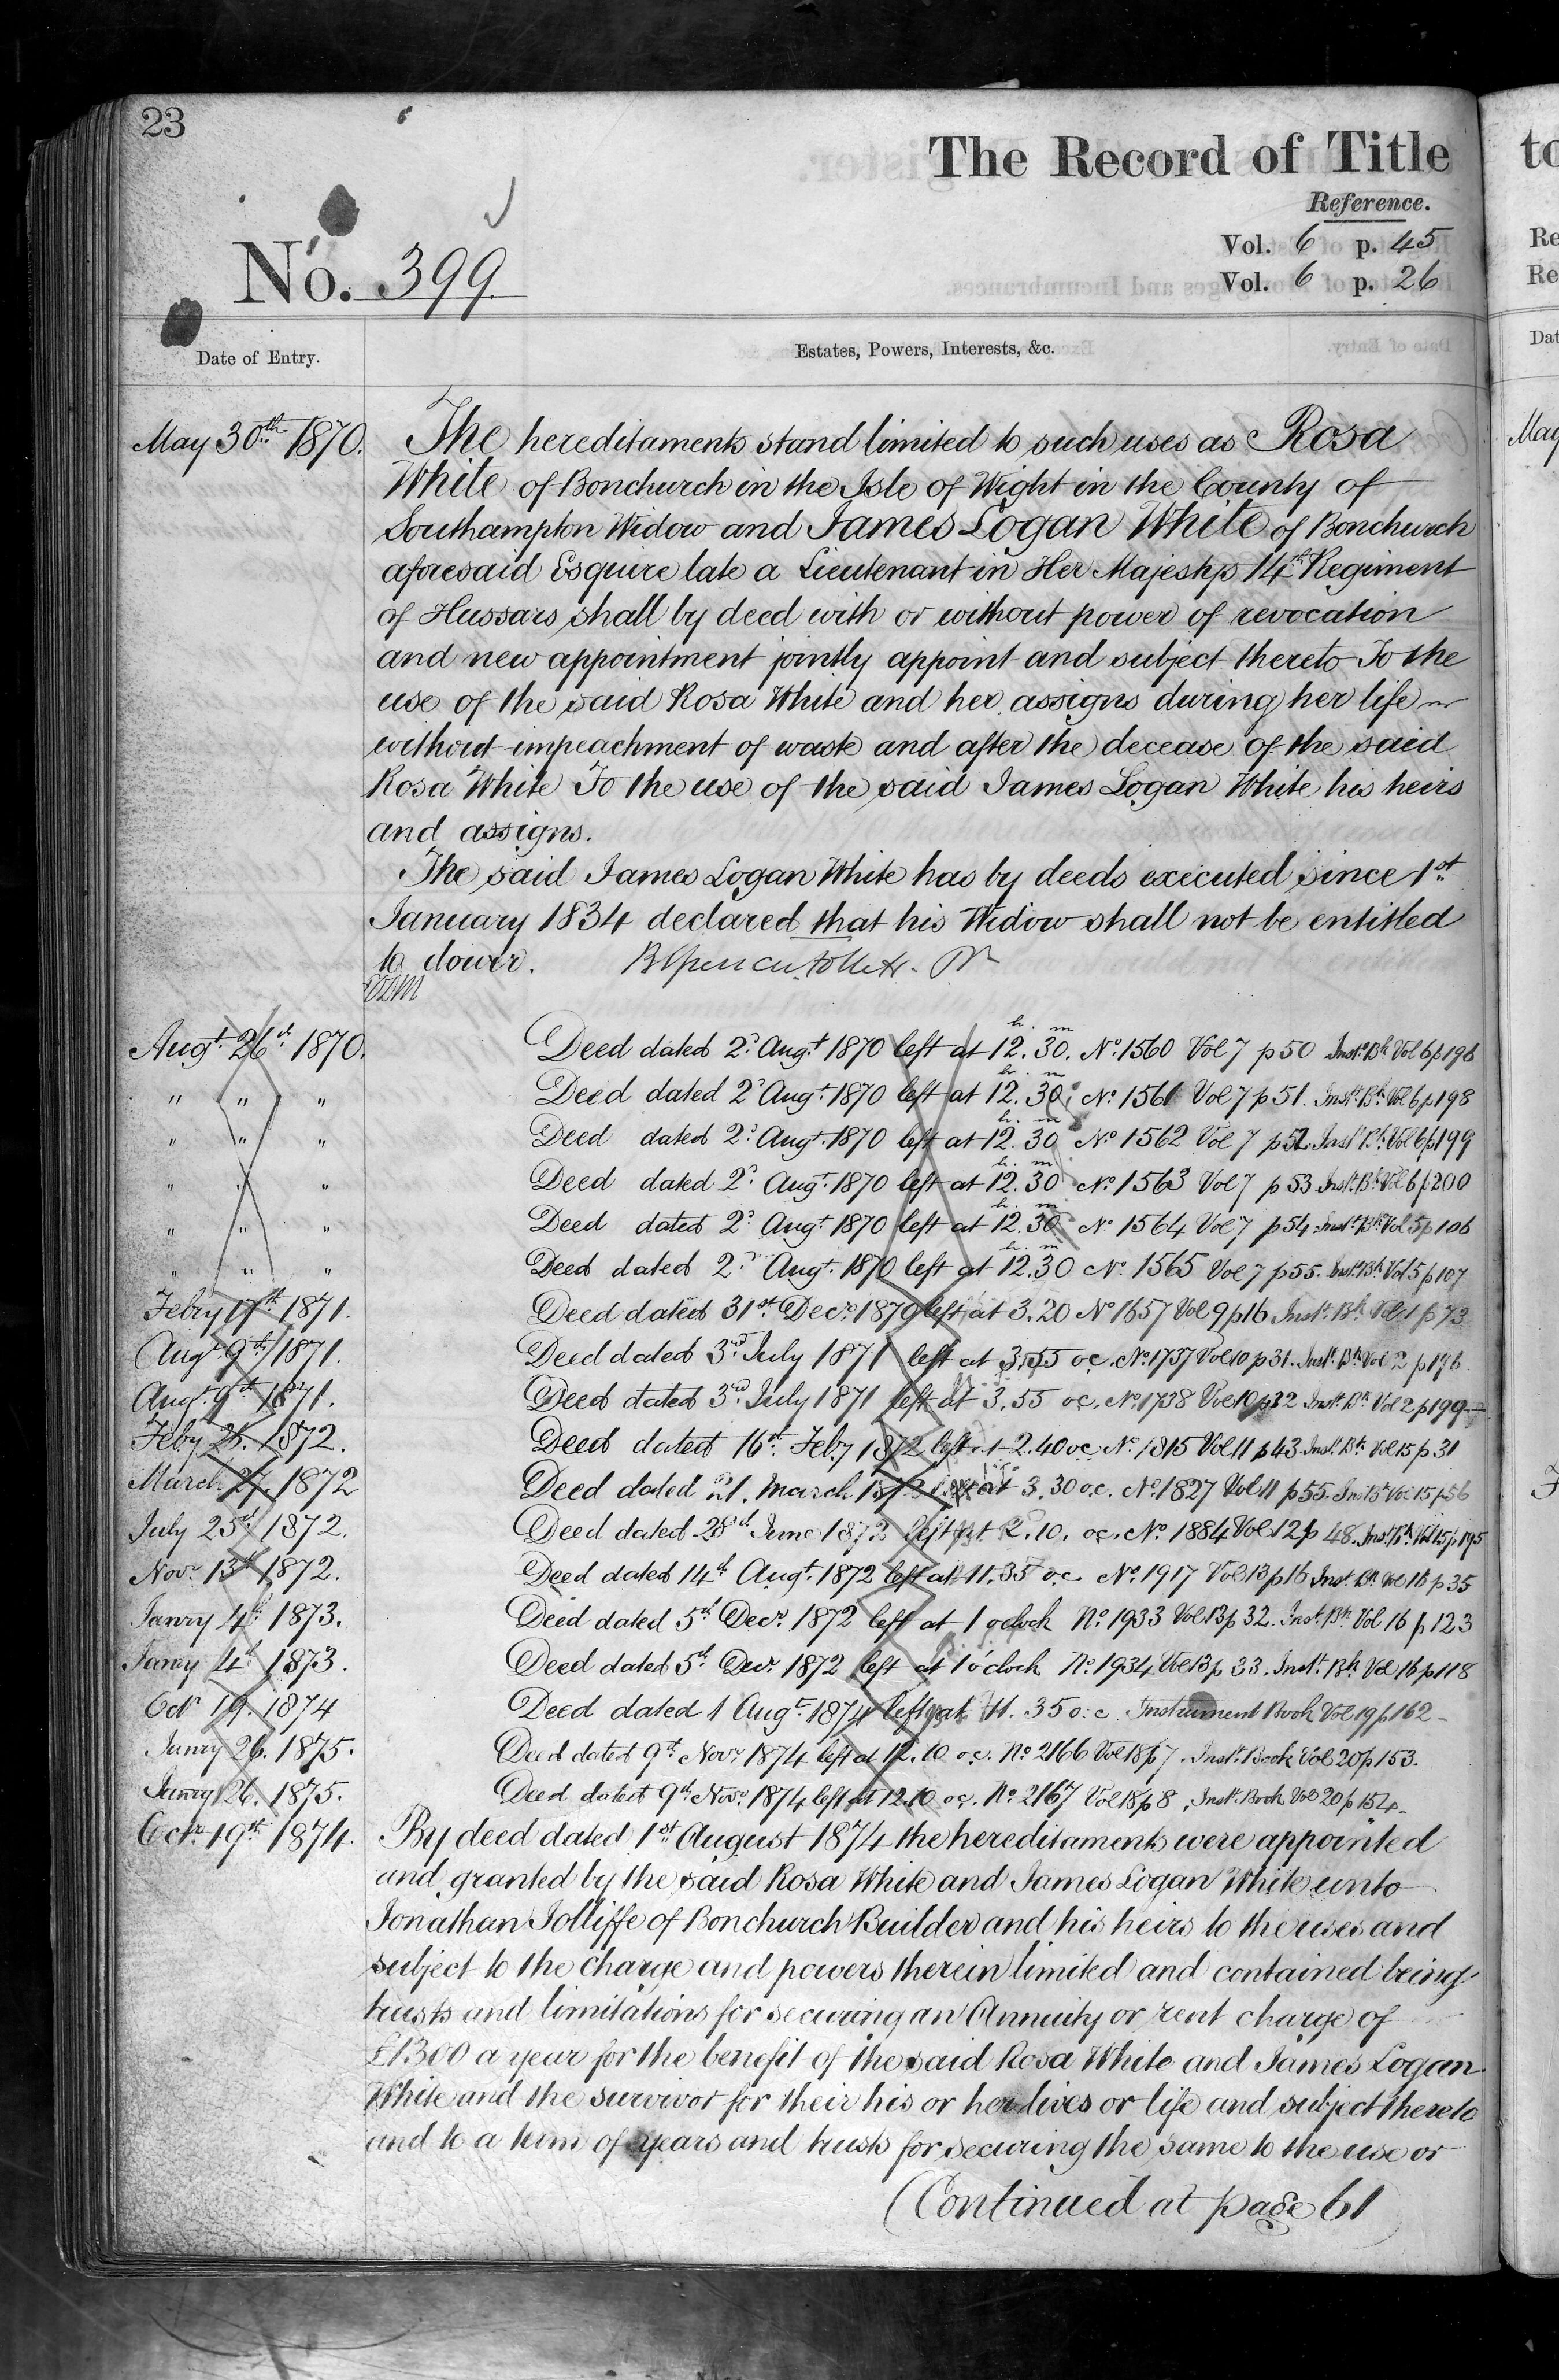 23
The Record of Title
Reference.
Vol. 6 p. 45
No. 399
Vol. 6 p. 26
Date of Entry.
Estates, Powers, Interests, &c.
May 30th 1870. The hereditaments stand limited to such uses as Rosa
White of Bonchurch in the Isle of Wight in the County of
Southampton Widow and James Logan White of Bonchurch
aforesaid Esquire late a Lieutenant in Her Majestys 14th Regiment
of Hussars shall by deed with or without power of revocation
and new appointment jointly appoint and subject thereto To the
use of the said Rosa White and her assigns during her life
without impeachment of waste and after the decease of the said
Rosa White To the use of the said James Logan White his heirs
and assigns.
The said James Logan White has by deeds executed since 1st
January 1834 declared that his Widow shall not be entitled
to dower.
Augt. 26th 1870. Deed dated 2d Augt 1870 left at 12h. 30m. No. 1560 Vol 7 p 50 Inst. Bk Vol 6 p 196
" " " Deed dated 2d Augt 1870 left at 12h. 30m. No. 1561 Vol 7 p 51. Inst. Bk Vol 6 p 198
" " " Deed dated 2d Augt. 1870 left at 12h. 30m No. 1562 Vol 7 p 52. Inst. Bk Vol 6 p 199
" " " Deed dated 2d Augt. 1870 left at 12h. 30m No. 1563 Vol 7 p 53 Inst. Bk Vol 6 p 200
" " " Deed dated 2d Augt 1870 left at 12h. 30m No. 1564 Vol 7 p 54 Inst. Bk Vol 5 p 106
" " " Deed dated 2d Augt. 1870 left at 12h. 30m No. 1565 Vol 7 p 55. Inst. Bk Vol 5 p 107
Febry 17th 1871. Deed dated 31st Decr. 1870 left at 3.20 No 1657 Vol 9 p 16 Inst. Bk Vol 1 p 73
Augt. 9th 1871. Deed dated 3rd July 1871 left at 3.55 oc. No. 1737 Vol 10 p 31. Inst. Bk Vol 2 p 196.
Augt. 9th 1871. Deed dated 3rd July 1871 left at 3.55 oc. No. 1738 Vol 10 p 32 Inst. Bk Vol 2 p 199
Feby 1872. Deed dated 16th Feby 1872 left at 2.40 oc. No. 1815 Vol 11 p 43 Inst. Bk Vol 15 p 31
March 27. 1872 Deed dated 21. March 1872 left at 3.30 o.c. No. 1827 Vol 11 p 55. Inst. Bk Vol 15 p 56
July 25th 1872. Deed dated 28th June 1872 left at 2.10. oc. No. 1884 Vol 12 p 48. Inst. Bk Vol 15 p 195
Novr. 13th 1872. Deed dated 14th Augt. 1872 left at 11.35 o.c. No. 1917 Vol 13 p 16 Inst. Bk Vol 16 p 35
Janry 4th 1873. Deed dated 5th Decr. 1872 left at 1 oclock No. 1933 Vol 13 p 32. Inst. Bk Vol 16 p 123
Janry 4th 1873. Deed dated 5th Decr. 1872 left at 1 o'clock No. 1934 Vol 13 p 33. Inst. Bk Vol 16 p 118
Octr 19. 1874 Deed dated 1 Augt. 1874 left at 11.35 o.c. Instrument Book Vol 19 p 162
Janry 26. 1875. Deed dated 9th Novr. 1874 left at 12.10 o.c. No. 2166 Vol 18 p 7. Inst. Book Vol 20 p 153.
Janry 26. 1875. Deed dated 9th Novr. 1874 left at 12.10 oc. No. 2167 Vol 18 p 8. Inst. Book Vol 20 p 154
Octr. 19th 1874. By deed dated 1st August 1874 the hereditaments were appointed
and granted by the said Rosa White and James Logan White unto
Jonathan Jolliffe of Bonchurch Builder and his heirs to the uses and
subject to the charge and powers therein limited and contained being
trusts and limitations for securing an Annuity or rent charge of
£1300 a year for the benefit of the said Rosa White and James Logan
White and the survivor for their his or her lives or life and subject thereto
and to a term of years and trusts for securing the same to the use or
(Continued at page 61)